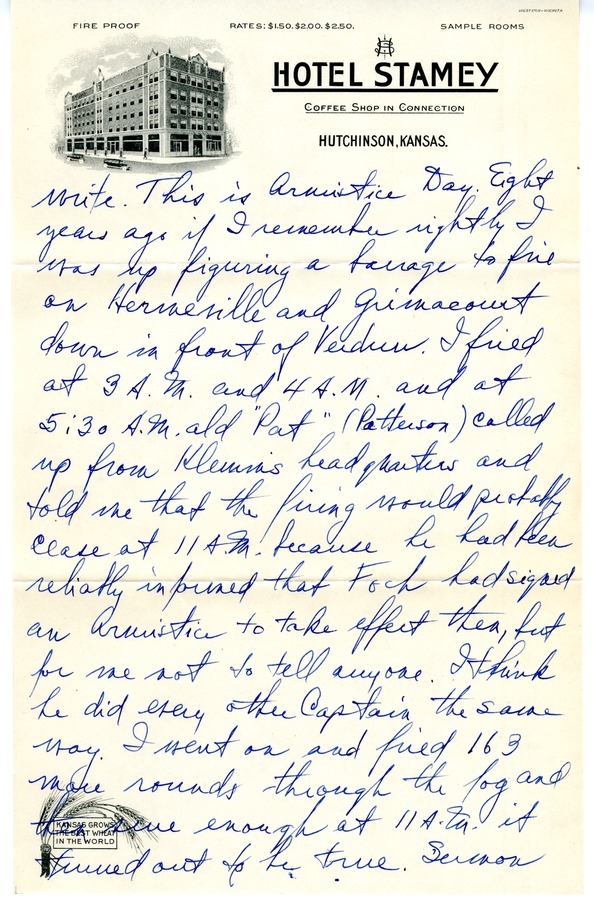 WESTERN-WICHITA
FIRE PROOF RATES: $1.50. $2.00. $2.50. SAMPLE ROOMS
HS
HOTEL STAMEY
COFFEE SHOP IN CONNECTION
HUTCHINSON, KANSAS.
write. This is Armistice Day. Eight
years ago if I remember rightly I
was up figuring a barrage to fire
on Hermeville and Grimacourt
down in front of Verdun. I fired
at 3 A.M. and 4 A.M. and at
5:30 A.M. old "Pat" (Patterson) called
up from Klemms headquarters and
told me that the firing would probably
cease at 11 A.M. because he had been
reliably informed that Foch had signed
an Armistice to take effect then, but
for me not to tell anyone. I think
he did every other Captain the same
way. I went on and fired 163
more rounds through the fog and
true enough at 11 A.M. it
turned out to be true. Sermon
KANSAS GROWS
THE BEST WHEAT
IN THE WORLD